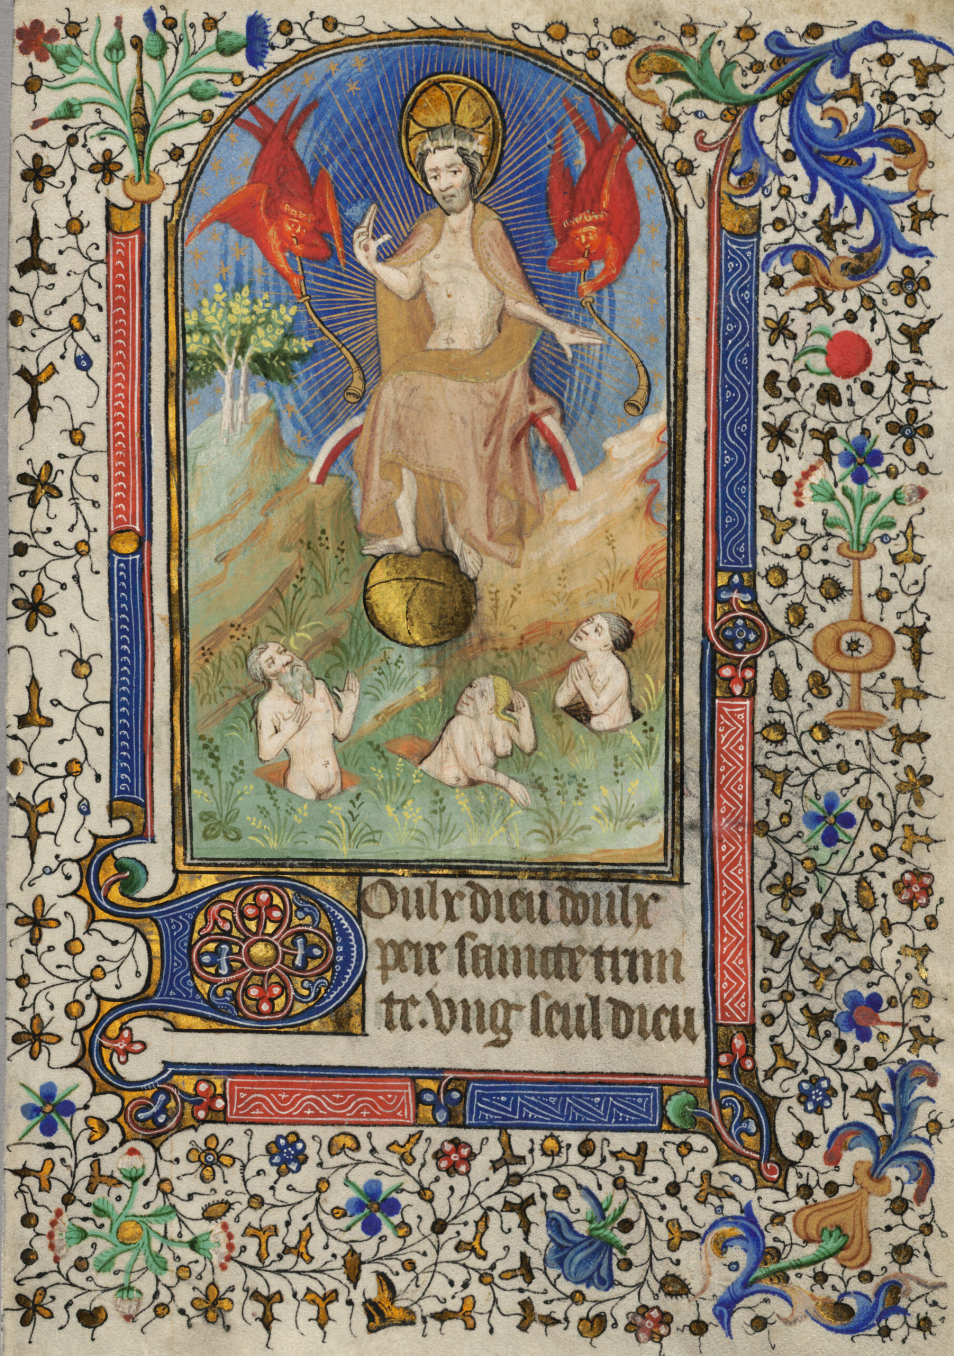 Doulx dieu doulx
pere saincte trini
te. vng seul dieu